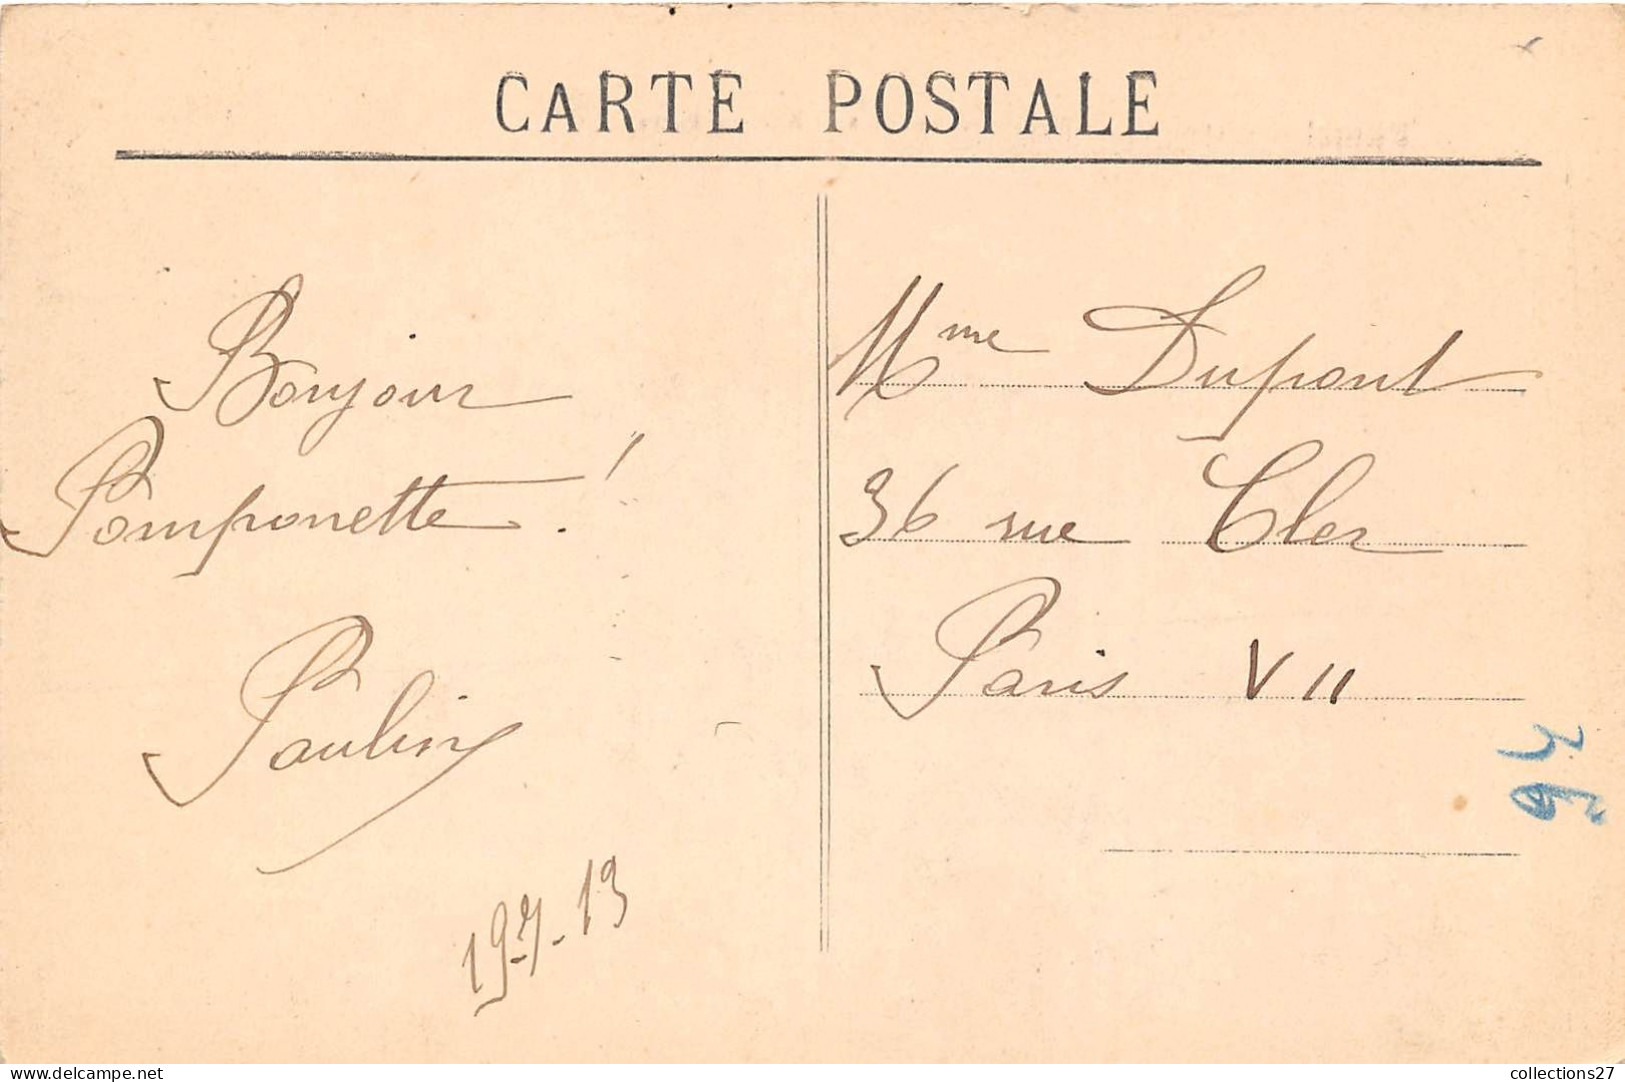 CARTE POSTALE
Bonjour
Pomponette !
Paulin
19-7-13
Mme Dupont
36 rue Cler
Paris VII
94
collections27